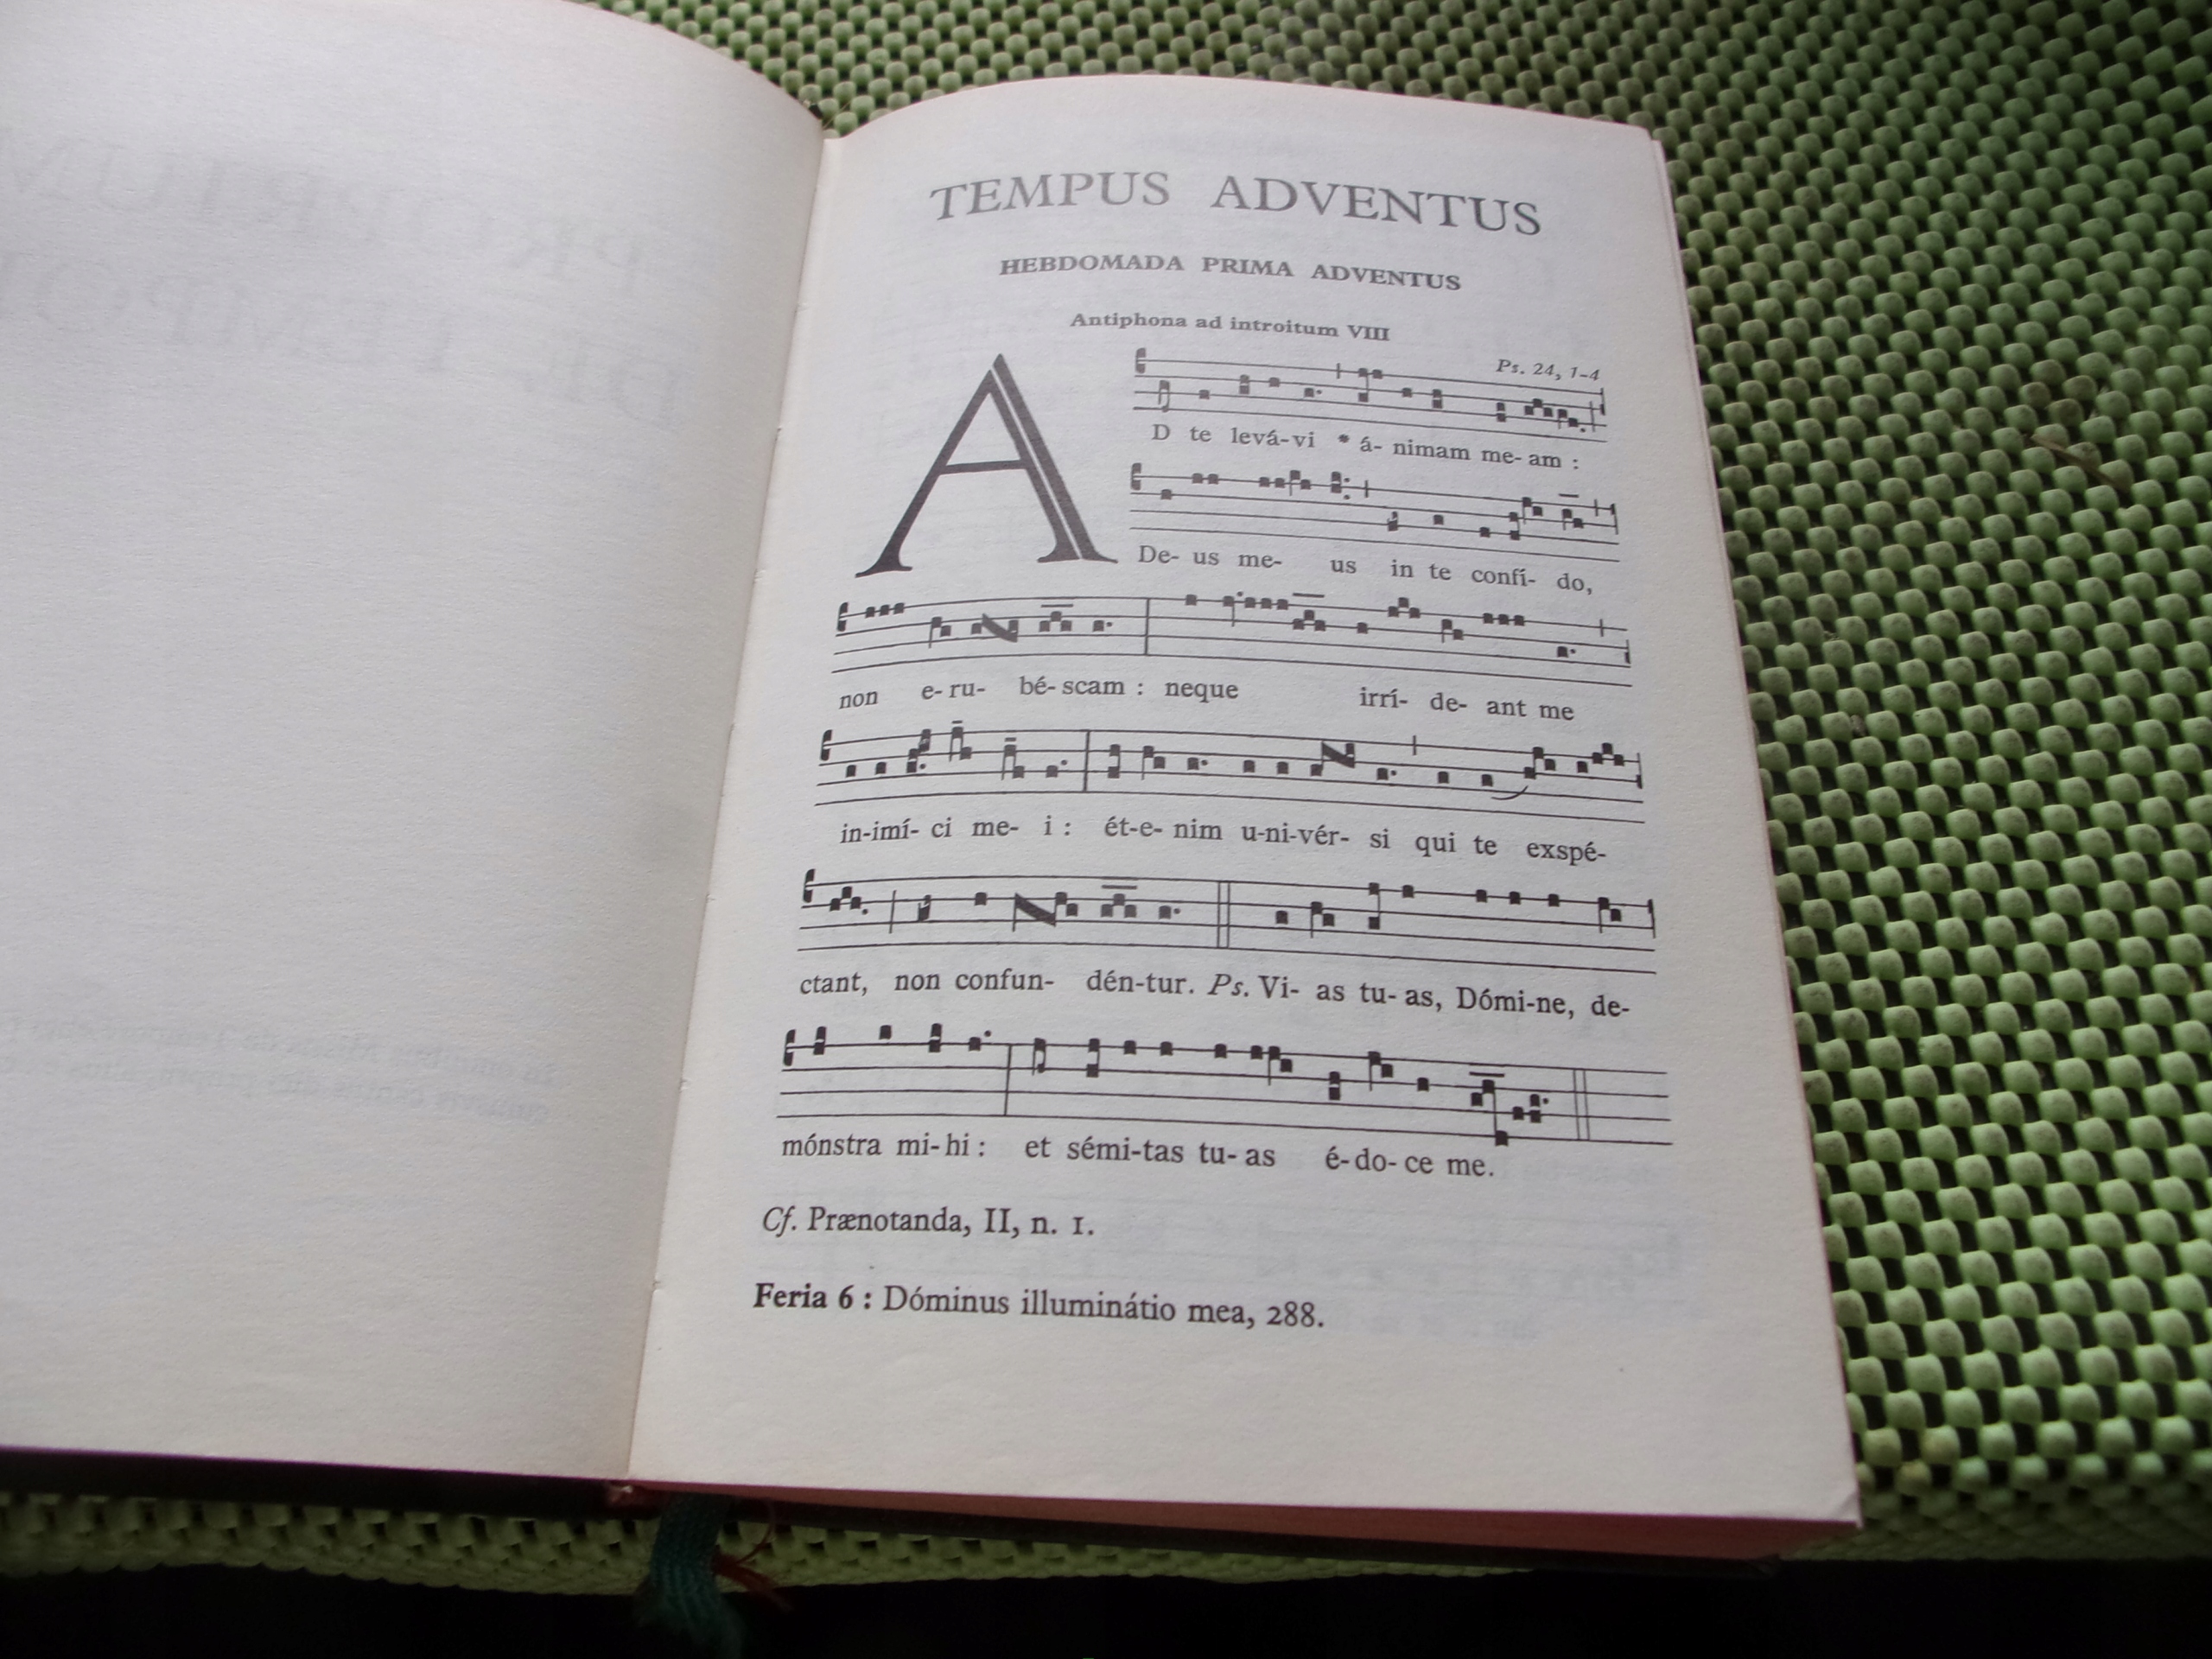 TEMPUS ADVENTUS
HEBDOMADA PRIMA ADVENTUS
Antiphona ad introitum VIII
Ps. 24, 1-4
AD te levá-vi * á- nimam me- am :
De- us me- us in te confí- do,
non e- ru- bé- scam : neque irrí- de- ant me
in-imí- ci me- i : ét-e- nim u-ni-vér- si qui te exspé-
ctant, non confun- dén-tur. Ps. Vi- as tu- as, Dómi-ne, de-
mónstra mi- hi : et sémi-tas tu- as é-do- ce me.
Cf. Prænotanda, II, n. 1.
Feria 6 : Dóminus illuminátio mea, 288.